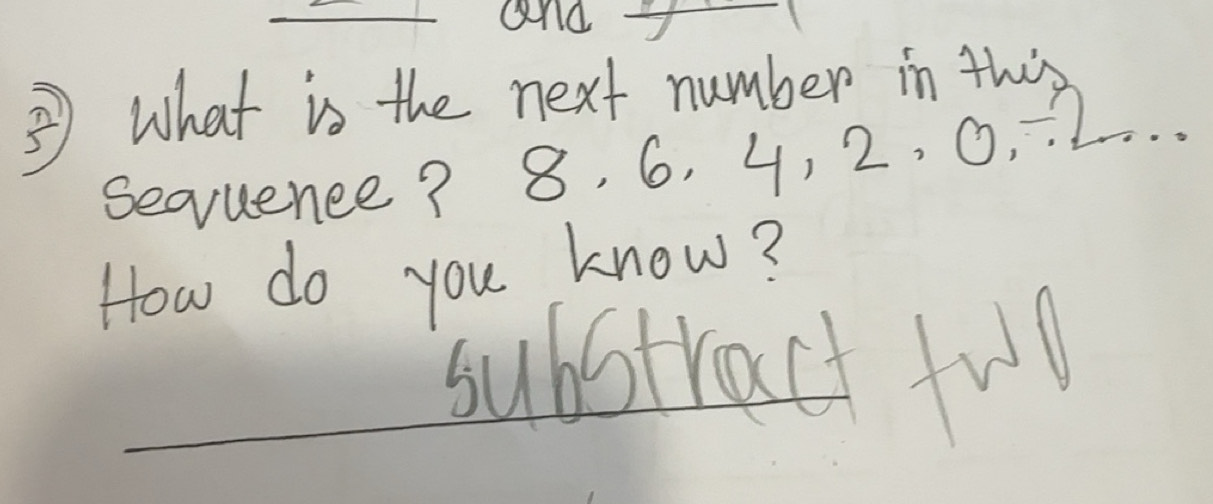 and
5) What is the next number in this
sequence? 8, 6, 4, 2, 0, -2...
How do you know?
substract two